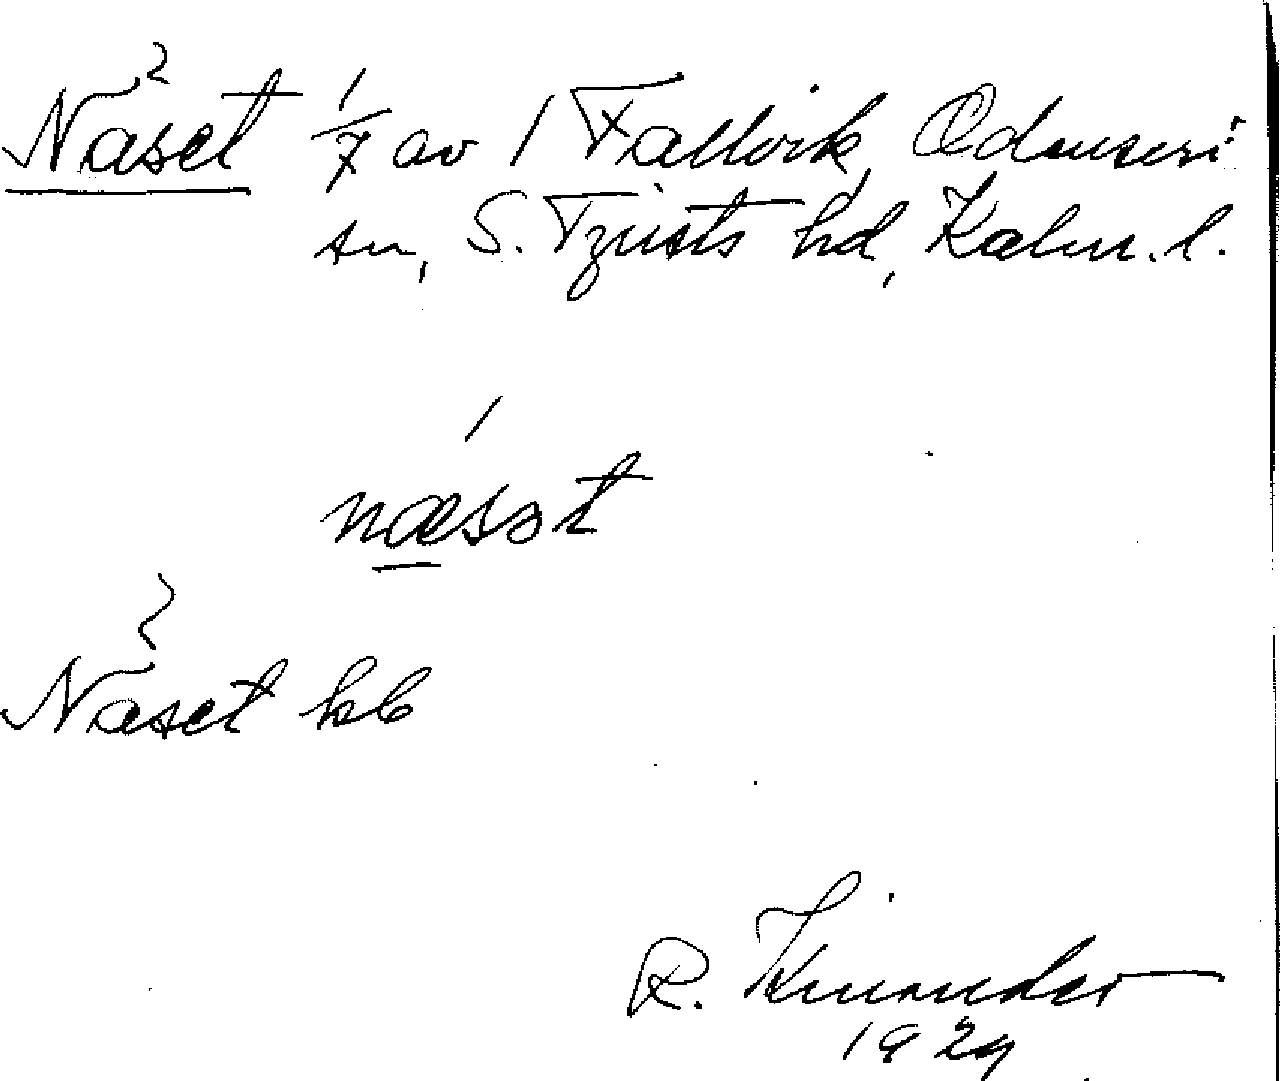 Näset 1/7 av 1 Fallvik, Odensvi
sn, S. Tjusts hd, Kalm. l.
næsət
Näset kb
R. Kinander
1929